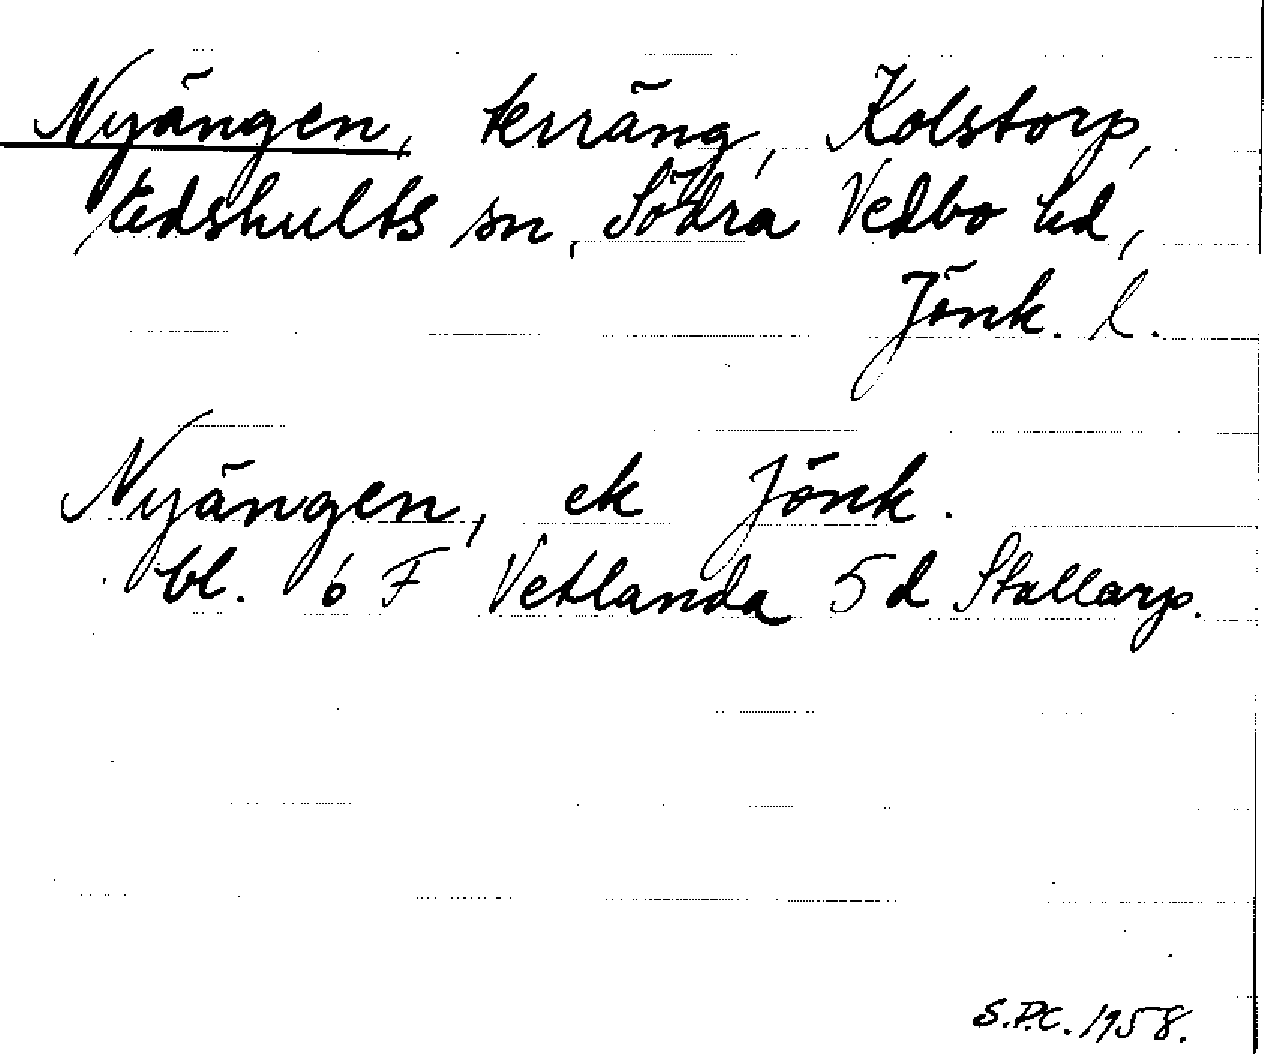 Nyängen, terräng, Kolstorp,
Edshults sn, Södra Vedbo hd,
Jönk. l.
Nyängen, ek Jönk.
bl. 6 F Vetlanda 5 d Stallarp.
S.P.C. 1958.